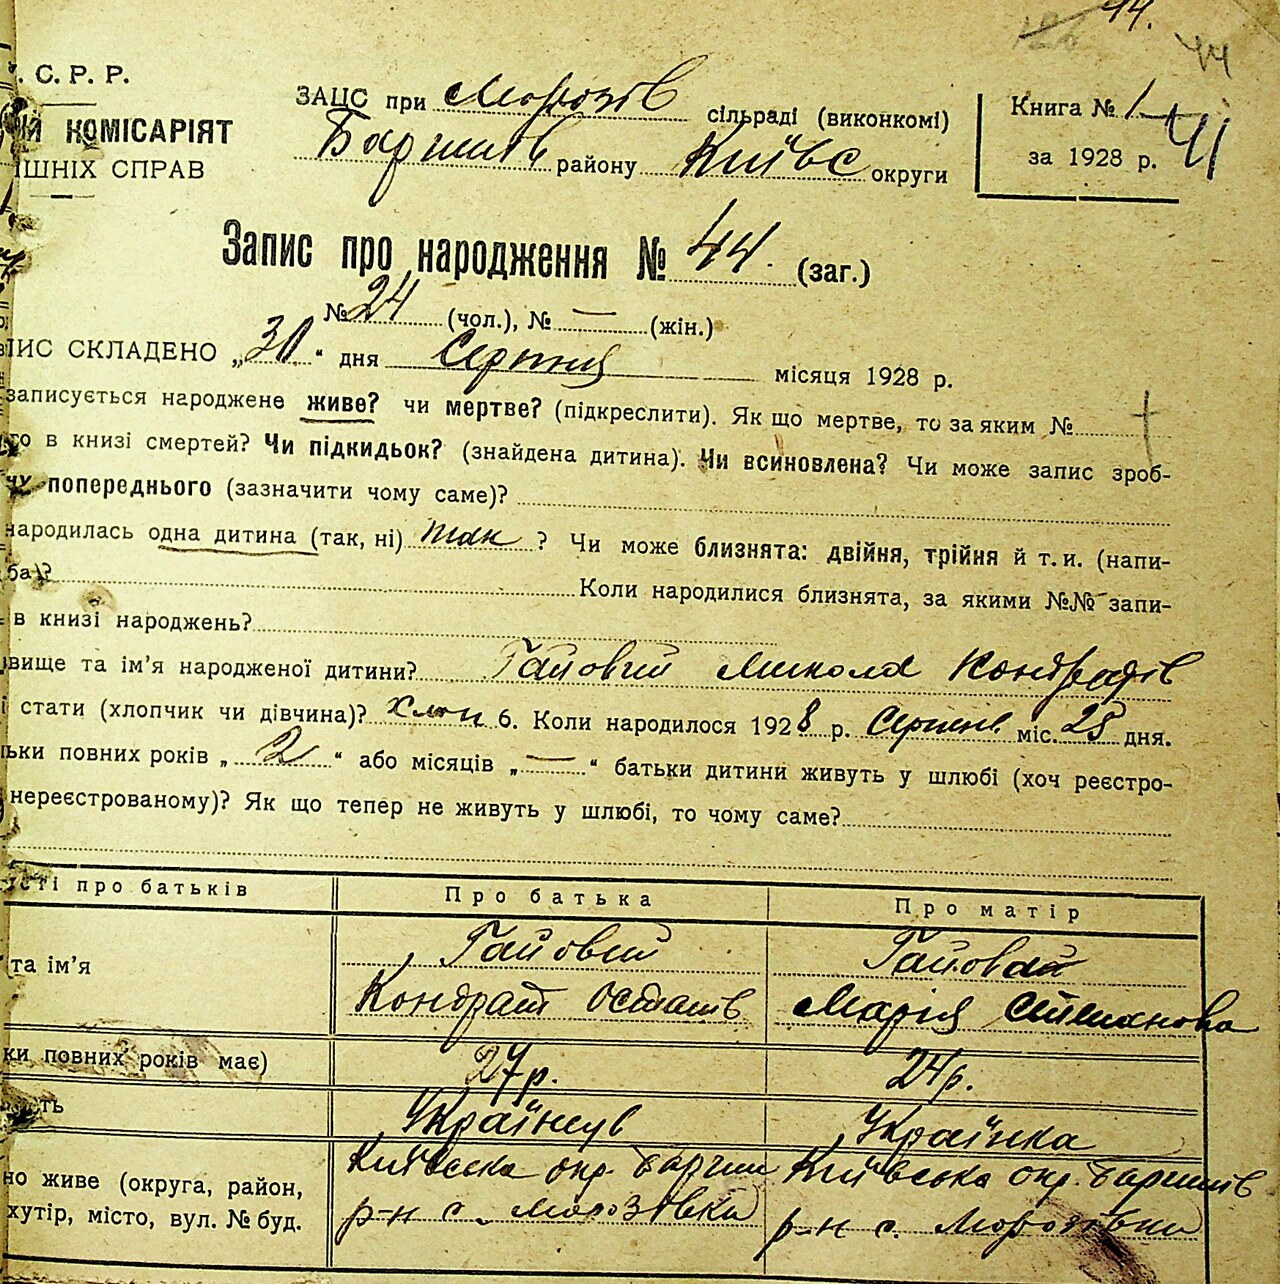 14.
44
. С. Р. Р.
ЗАЦС при Морозів сільраді (виконкомі)
Книга № 1
41
Й КОМІСАРІЯТ
Баришів району Київс округи
за 1928 р.
ІШНІХ СПРАВ
Запис про народження № 44. (заг.)
№ 24 (чол.), № — (жін.)
ПИС СКЛАДЕНО „30“ дня Серпня місяця 1928 р.
записується народжене живе? чи мертве? (підкреслити). Як що мертве, то за яким №
го в книзі смертей? Чи підкидьок? (знайдена дитина). Чи всиновлена? Чи може запис зроб-
чу попереднього (зазначити чому саме)?
народилась одна дитина (так, ні) так ? Чи може близнята: двійня, трійня й т. и. (напи-
ба)? Коли народилися близнята, за якими №№ запи-
в книзі народжень?
вище та ім’я народженої дитини? Гайовий Микола Кондратів
і стати (хлопчик чи дівчина)? хлоп 6. Коли народилося 1928 р. Серпня міс. 28 дня.
ьки повних років „ 2 “ або місяців „ — “ батьки дитини живуть у шлюбі (хоч реєстро-
нереєстрованому)? Як що тепер не живуть у шлюбі, то чому саме?
ості про батьків Про батька Про матір
та ім’я Гайовий Гайовая
Кондрат Остапів Марія Степанова
ки повних років має) 27 р. 24 р.
ість Українець Українка
но живе (округа, район, Київська окр. Баришів Київська окр. Баришів
хутір, місто, вул. № буд. р-н с. Морозівка р-н с. Морозівка